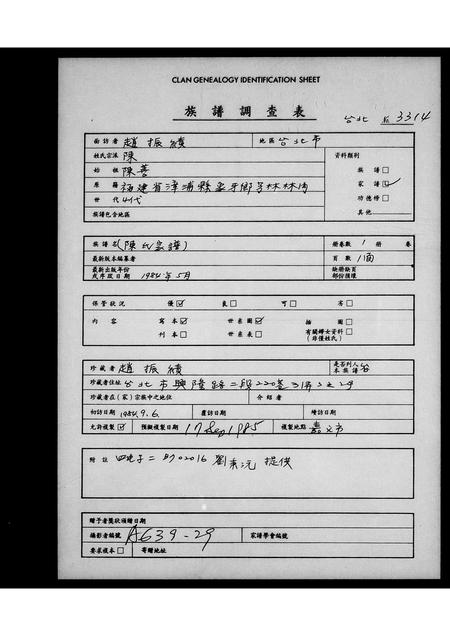 CLAN GENEALOGY IDENTIFICATION SHEET
族譜調查表
台北 № 3314
面訪者 趙振績 地區 台北市
姓氏宗派 陳 資料類別
始祖 陳善 族譜□
原籍 福建省漳浦縣 家譜☑
世代 4代 功德榜□
族譜包含地區 其他
族譜名 (陳氏家譜) 冊卷數 1 卷
最新版本編纂者 頁數 1面
最新出版年份或序跋日期 1984年5月 缺冊缺頁部份損壞
保管狀況 優☑ 良□ 可□ 劣□
內容 寫本☑ 世系圖☑ 插圖□
刊本□ 世系表□ 有關婦女資料□ (非僅姓氏)
珍藏者 趙振績 是否列入本族譜 否
珍藏者住址 台北市興隆路二段220巷
珍藏者在(家)宗族中之地位 介紹者
初訪日期 1984.9.6. 覆訪日期 續訪日期
允許複製☑ 預擬複製日期 17 Sep 1985 複製地點 嘉义市
附註 劉素沅提供
贈予者獎狀頒贈日期
攝影者編號 A639-29 家譜學會編號
要求複本□ 寄贈地址